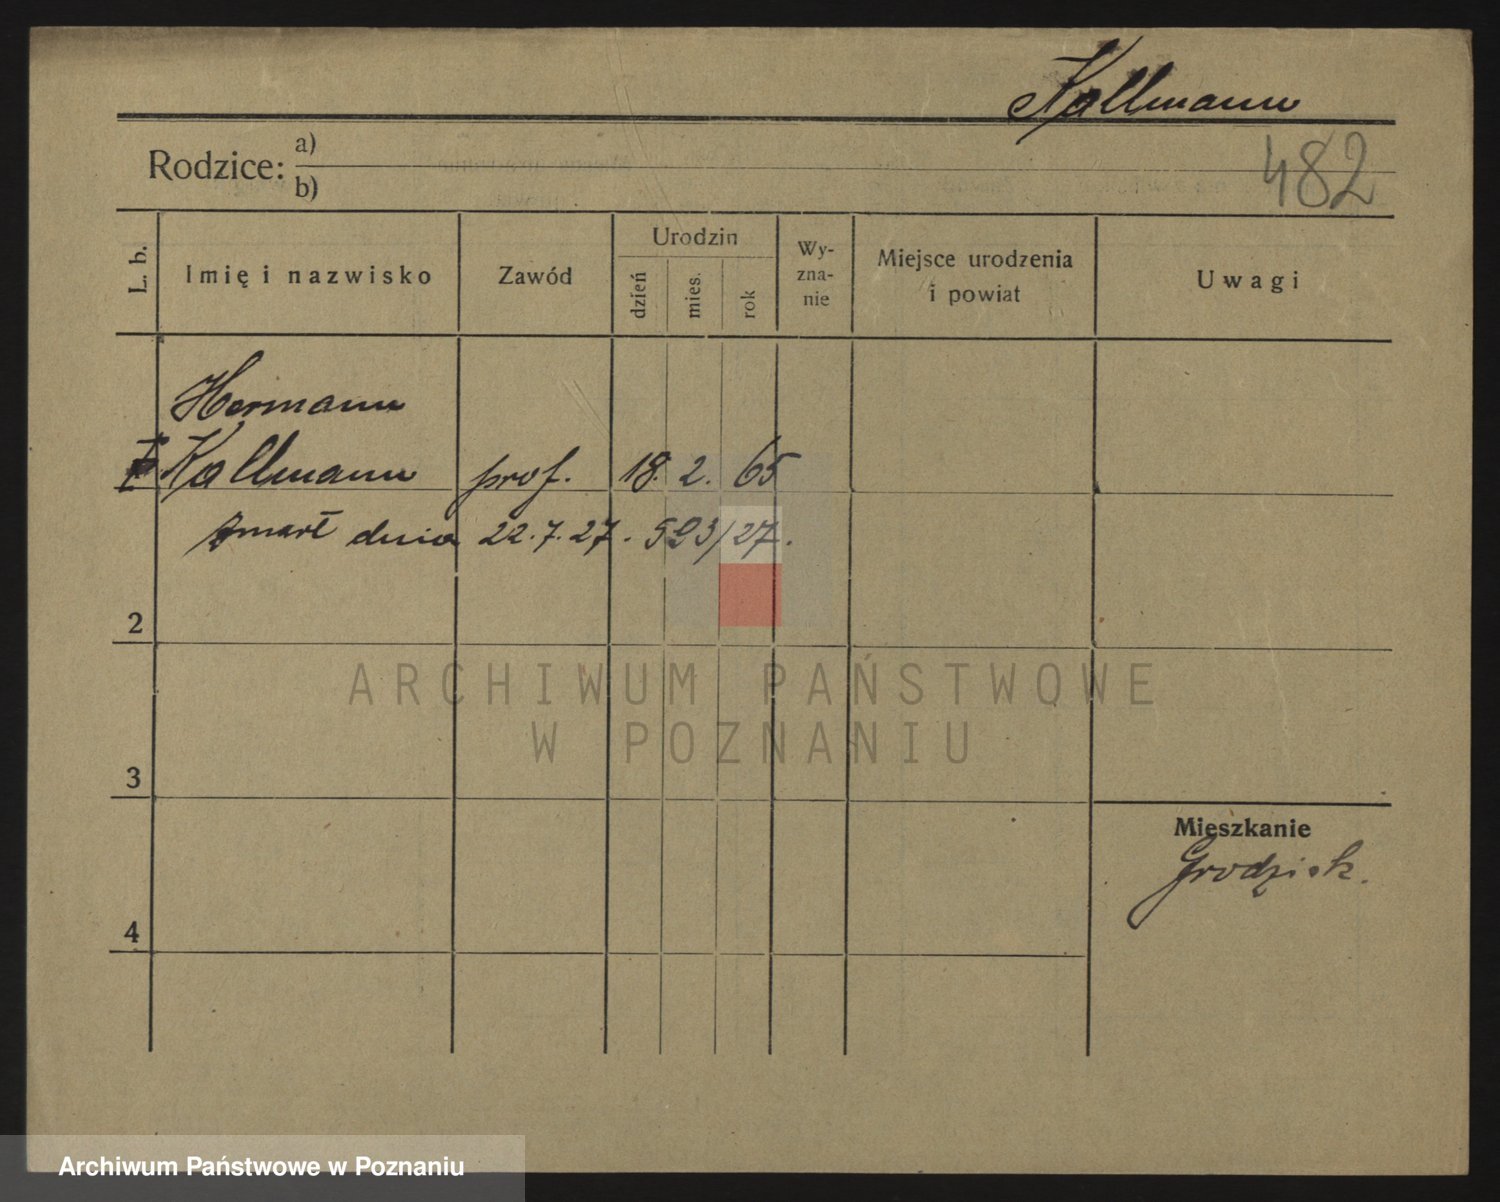 Kallmann
482
Rodzice:
a)
b)
L. b.
Imię i nazwisko
Zawód
Urodzin
dzień
mies.
rok
Wy-
zna-
nie
Miejsce urodzenia
i powiat
Uwagi
Hermann
Kallmann prof. 18. 2. 65
zmarł dnia 22.7.27. 593/27.
2
3
4
Mieszkanie
Grodzisk.
ARCHIWUM PAŃSTWOWE
W POZNANIU
Archiwum Państwowe w Poznaniu